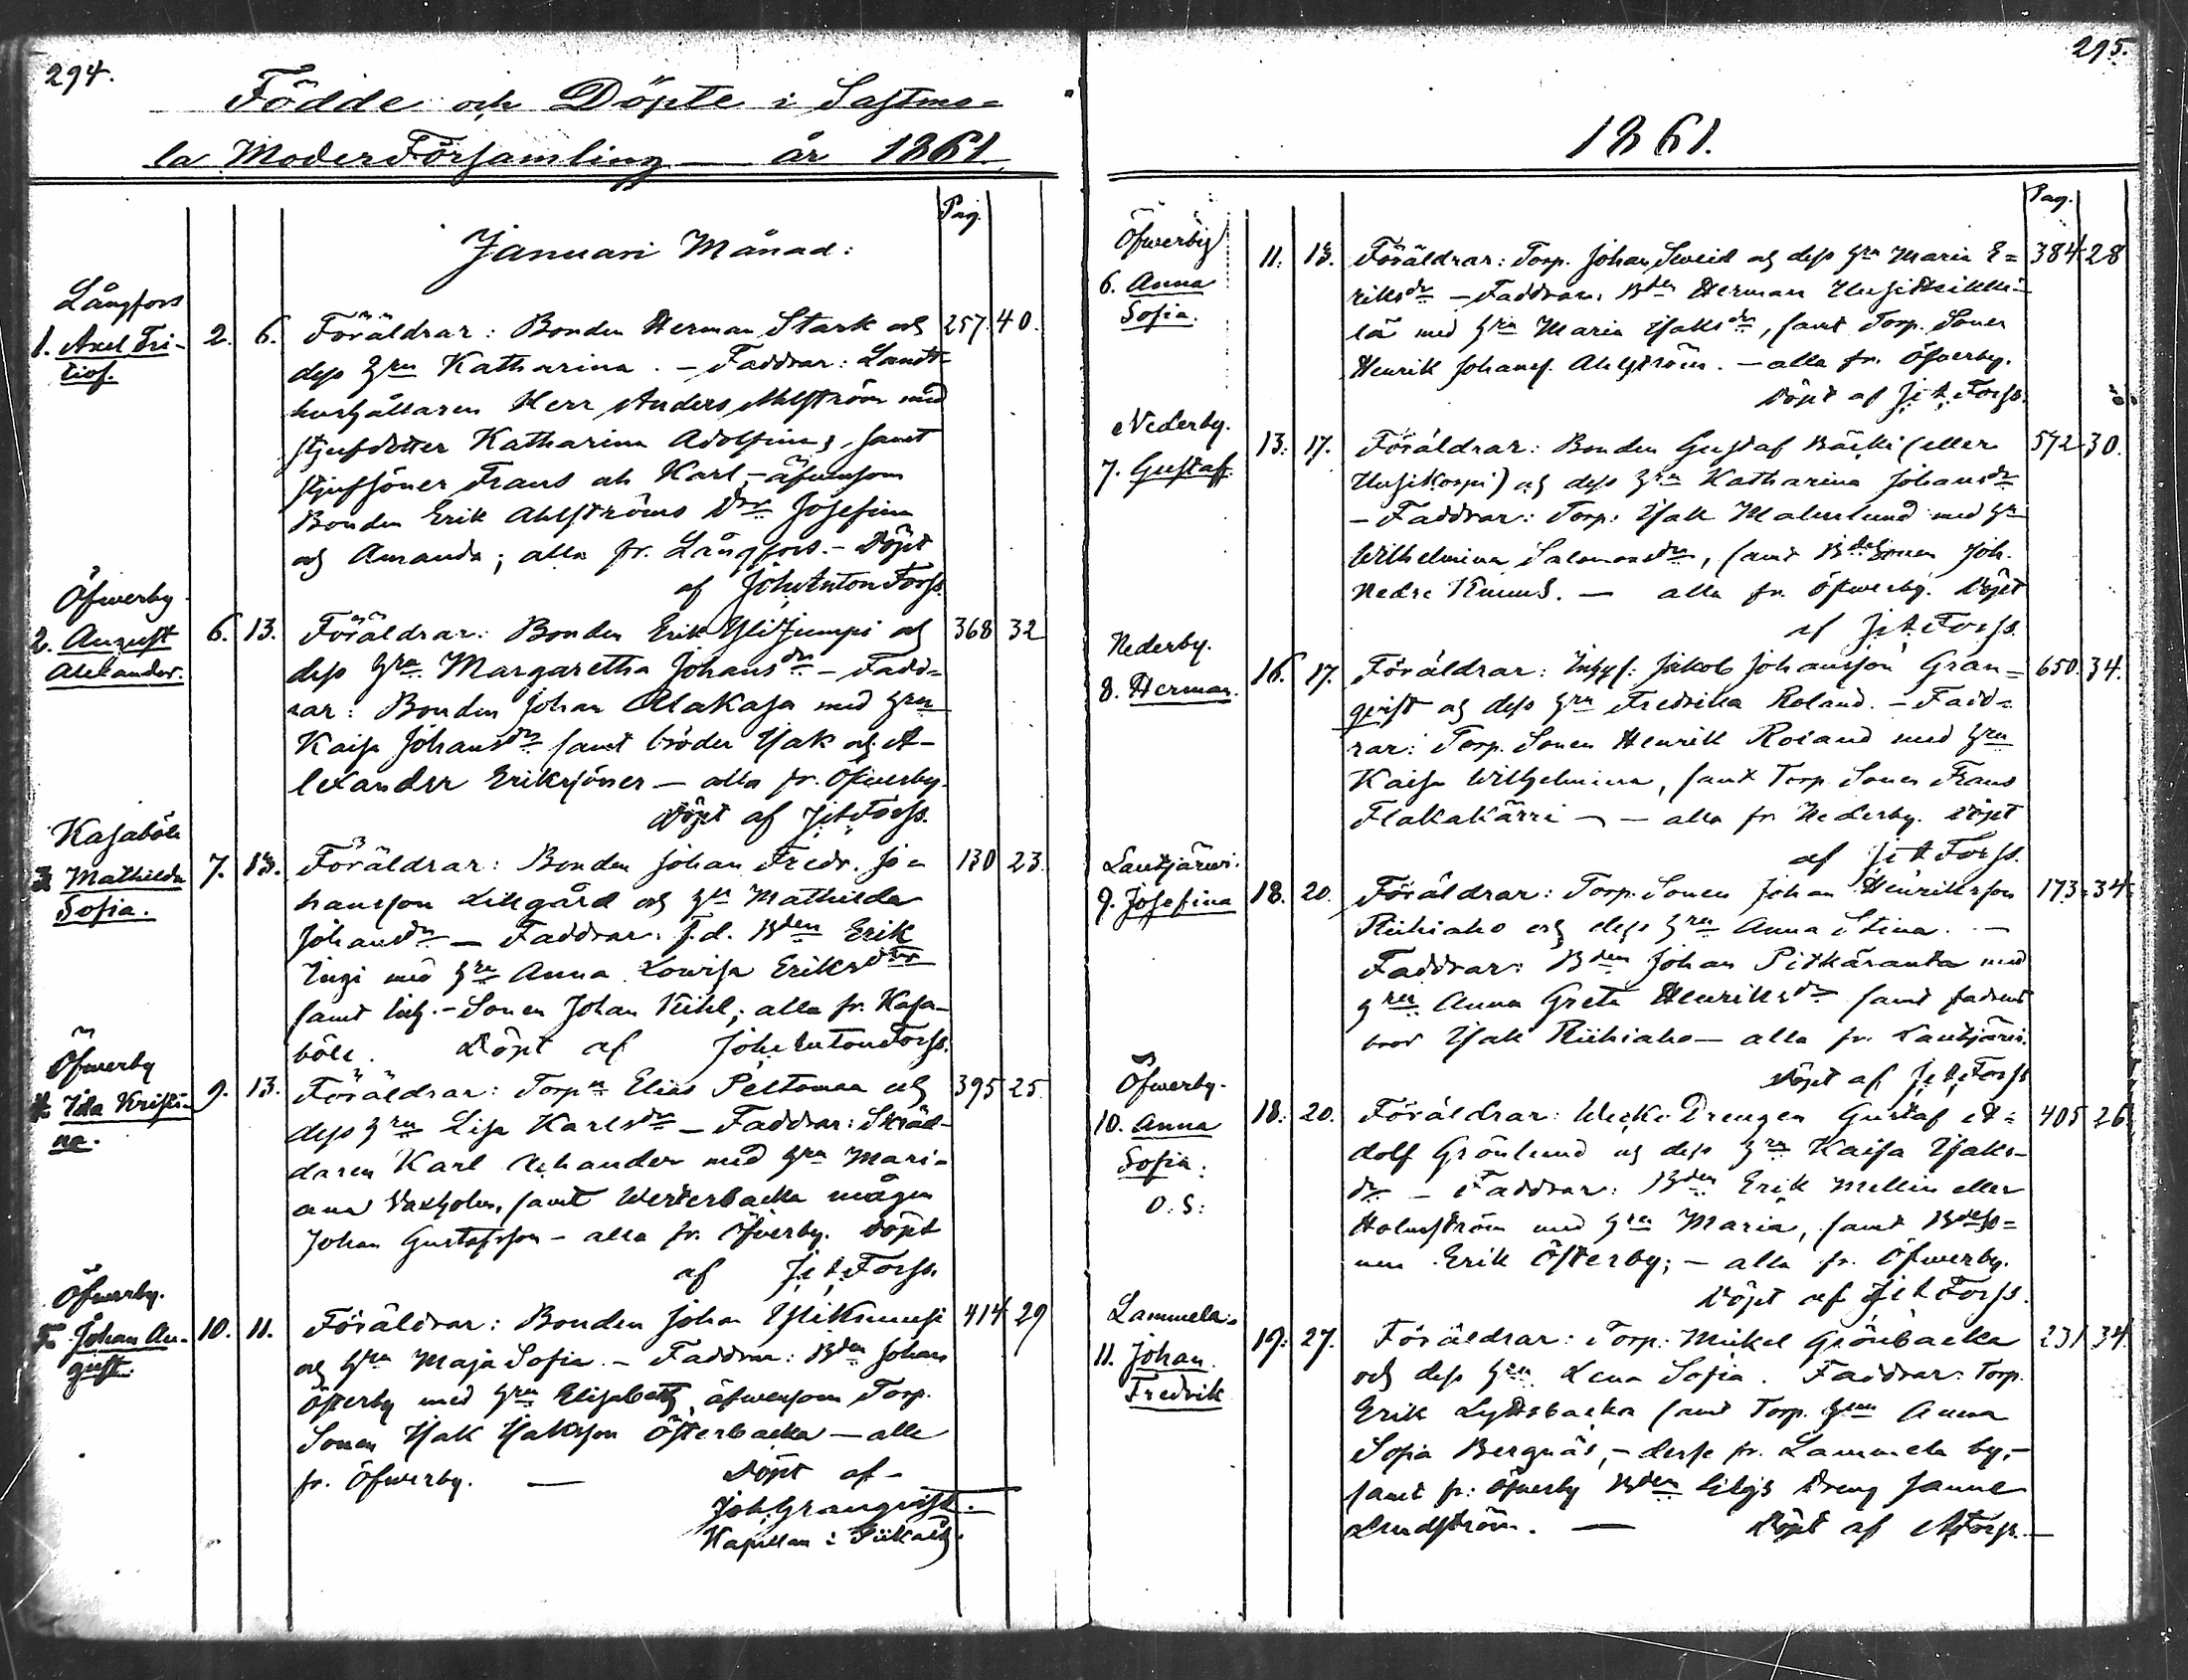 294.
Födde och Döpte i Sastmo=
la ModerFörsamling — år 1861.
Pag.
Januari Månad:
Långfors
1. Axel Fri-
tiof.
2. 6. Föräldrar: Bonden Herman Stark och 257. 40.
dess hru Katharina. – Faddrar: Landt-
hushållaren Herr Anders Ahlström med
styfdotter Katharina Adolfina, samt
styfsöner Frans och Karl, – äfvensom
Bonden Erik Ahlströms Dtr Josefina
och Amanda; alla fr. Långfors. – Döpt
af Joh. Anton Forss.
Öfwerby
2. August
Alexander.
6. 13. Föräldrar: Bonden Erik YliJumpi och 368 32
dess hru Margaretha Johansdr – Fadd-
rar: Bonden Johan Alakasa med hru
Kaisa Johansdr samt bröder Isak och A-
lexander Eriksöner – alla fr. Öfwerby.
Döpt af J: A: Forss.
Kasaböle
3 Mathilda
Sofia.
7. 13. Föräldrar: Bonden Johan Fredr. Jo= 130 23.
hansson Lillgård och hr Mathilda
Johansdr – Faddrar: F.d. Bden Erik
Ingi med hru Anna Lovisa Eriksdtr
samt Inh.-Sonen Johan Kihl; alla fr. Kasa-
böle. Döpt af Joh. Anton Forss.
Öfwerby
4. Ida Kristi-
na.
9. 13. Föräldrar: Torpn Elias Peltomaa och 395 25.
dess hru Lisa Karlsdr – Faddrar: Skräd-
daren Karl med hru Mari-
ana Vaxholm, samt Westerbacka mågen
Johan Gustafsson – alla fr. Öfverby. Döpt
af J: A: Forss.
Öfwerby.
5. Johan Au-
gust.
10. 11. Föräldrar: Bonden Johan Yliknuusi 414 29
och hru Maja Sofia. – Faddrar: Bden Johan
Österby med hru Elisabeth, äfwensom Torp.
Sonen Isak Isaksson Österbacka – alle
fr. Öfwerby. — Döpt af –
Joh. Granqvist.
Kapellan i Siikais.
295.
1861.
Pag.
Öfwerby
6. Anna
Sofia.
11. 13. Föräldrar: Torp. Johan Sweid och dess hru Maria E= 384 28
riksdr – Faddrar: Bden Herman UusiHeikki-
lä med hru Maria Isaksdr, samt Torp. Sonen
Henrik Johanss. Ahlström. – alla fr. Öfverby.
Döpt af J: A: Forss.
Nederby.
7. Gustaf.
13. 17. Föräldrar: Bonden Gustaf Bäcki (eller 572 30.
UusiKorpi) och dess hru Katharina Johansdr
– Faddrar: Torp: Isak Malmlund med hru
Wilhelmina Salomonsdr, samt Bdesonen Joh.
Nedre Knuus. — alla fr. Öfwerby. Döpt
af J: A: Forss.
Nederby.
8. Herman.
16. 17. Föräldrar: Inhys: Jakob Johansson Gran= 650. 34.
qvist och dess hru Fredrika Roland. – Fadd=
rar: Torp. Sonen Henrik Roland med hru
Kaisa Wilhelmina, samt Torp Sonen Frans
Flakakärri – – alla fr Nederby. Döpt
af J: A: Forss.
Lautjärwi.
9. Josefina
18. 20. Föräldrar: Torp. Sonen Johan Henriksson 173 34
Riihiaho och dess hru Anna Stina. –
Faddrar: Bden Johan Pitkäranta med
hru Anna Greta Henriksdr samt fadrens
bror Isak Riihiaho – alla fr. Lautjärvi.
Döpt af J: A: Forss
Öfwerby.
10. Anna
Sofia:
O. S:
18: 20. Föräldrar: Wecko Drengen Gustaf A= 405 26
dolf Grönlund och dess hru Kaisa Isaks-
dr – Faddrar: Bden Erik Mellin eller
Holmström med hru Maria, samt Bdeso=
nen Erik Österby; – alla fr. Öfwerby.
Döpt af J: A: Forss.
Lammela.
11. Johan
Fredrik
19: 27. Föräldrar: Torp: Mickel Grönbacka 231 34.
och dess hru Lena Sofia. Faddrar: Torp.
Erik Lyttsbacka samt Torp. hru Anna
Sofia Bergnäs, – desse fr. Lammela by, –
samt fr: Öfwerby Bden Dreng Janne
Lundström. — Döpt af A. Forss. —